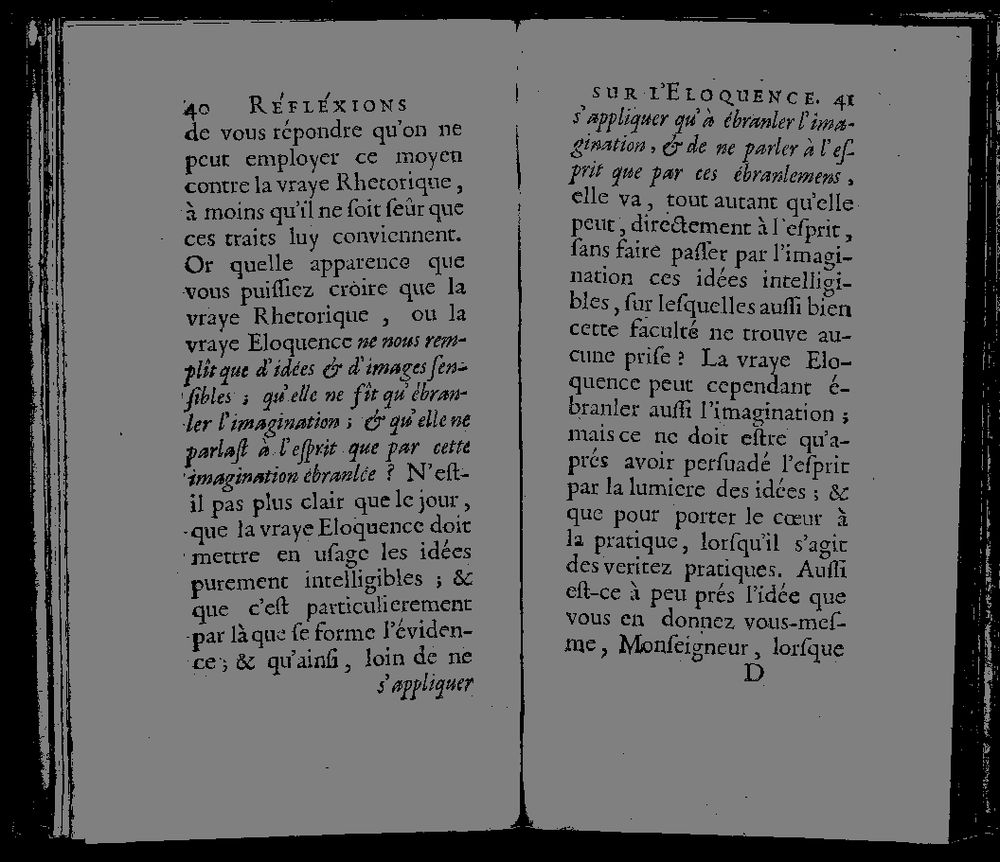 40 RÉFLÉXIONS
de vous répondre qu'on ne
peut employer ce moyen
contre la vraye Rhetorique,
à moins qu'il ne ſoit ſeûr que
ces traits luy conviennent.
Or quelle apparence que
vous puiſſiez croire que la
vraye Rhetorique , ou la
vraye Eloquence ne nous rem-
plît que d'idées & d'images ſen-
ſibles ; qu'elle ne fît qu'ébran-
ler l'imagination ; & qu'elle ne
parlaſt à l'eſprit que par cette
imagination ébranlée ? N'eſt-
il pas plus clair que le jour,
que la vraye Eloquence doit
mettre en uſage les idées
purement intelligibles ; &
que c'eſt particulierement
par là que ſe forme l'éviden-
ce ; & qu'ainſi, loin de ne
s'appliquer
SUR L'ELOQUENCE. 41
s'appliquer qu'à ébranler l'ima-
gination, & de ne parler à l'eſ-
prit que par ces ébranlemens,
elle va, tout autant qu'elle
peut, directement à l'eſprit,
ſans faire paſſer par l'imagi-
nation ces idées intelligi-
bles, ſur leſquelles auſſi bien
cette faculté ne trouve au-
cune priſe ? La vraye Elo-
quence peut cependant é-
branler auſſi l'imagination ;
mais ce ne doit eſtre qu'a-
prés avoir perſuadé l'eſprit
par la lumiere des idées ; &
que pour porter le cœur à
la pratique, lorſqu'il s'agit
des veritez pratiques. Auſſi
eſt-ce à peu prés l'idée que
vous en donnez vous-meſ-
me, Monſeigneur, lorſque
D